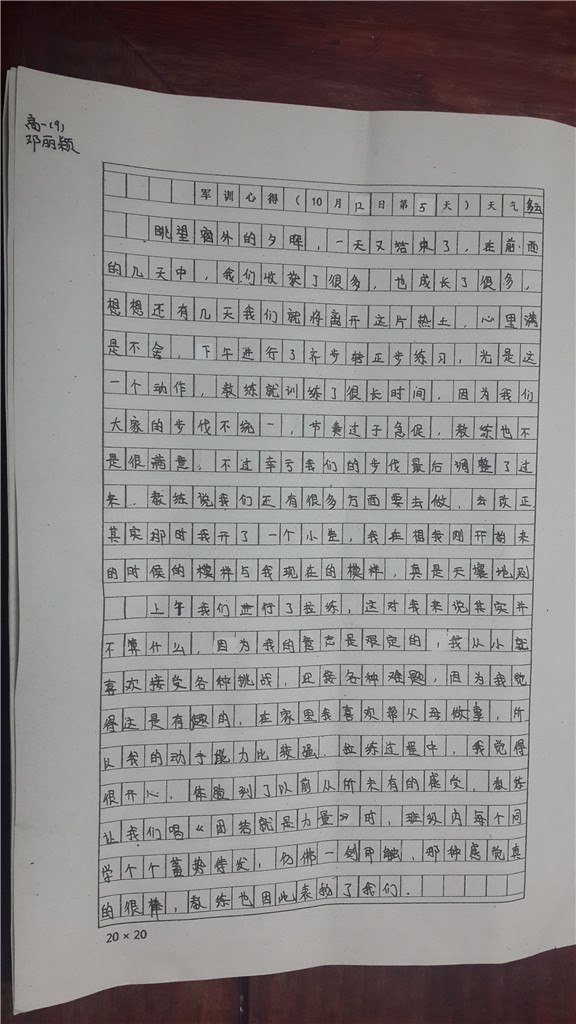 高一(9)
邓丽颖
军训心得(10月12日第5天)天气多云
眺望窗外的夕晖，一天又结束了，在前面
的几天中，我们收获了很多，也成长了很多，
想想还有几天我们就将离开这片热土，心里满
是不舍，下午进行了齐步转正步练习，光是这
一个动作，教练就训练了很长时间，因为我们
大家的步伐不统一，节奏过于急促，教练也不
是很满意，不过幸亏我们的步伐最后调整了过
来，教练说我们还有很多方面要去做，去改正
其实那时我开了一个小差，我在想我刚开始来
的时候的模样与我现在的模样，真是天壤地别
上午我们进行了拉练，这对我来说其实并
不算什么，因为我的意志是坚定的，我从小就
喜欢接受各种挑战，迎接各种难题，因为我觉
得这是有趣的，在家里我喜欢帮父母做事，所
以我的动手能力比较强，拉练过程中，我觉得
很开心，体验到了以前从所未有的感受，教练
让我们唱《团结就是力量》时，班级内每个同
学个个蓄势待发，仿佛一触即触，那种感觉真
的很棒，教练也因此表扬了我们．
20×20